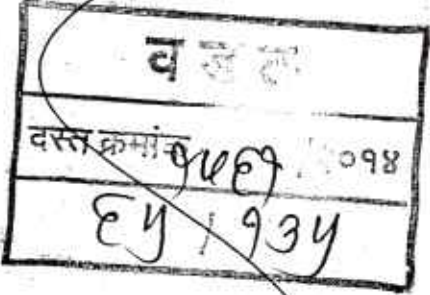 व ज ल
दस्त क्रमांक १५६१ २०१४
६५ / १३५